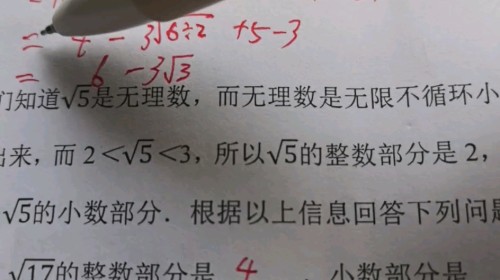 = 4 - 3√6÷2 +5-3
= 6 -3√3
们知道√5是无理数，而无理数是无限不循环小
出来，而 2＜√5＜3，所以√5的整数部分是 2，
√5的小数部分．根据以上信息回答下列问题
√17的整数部分是 4 ，小数部分是